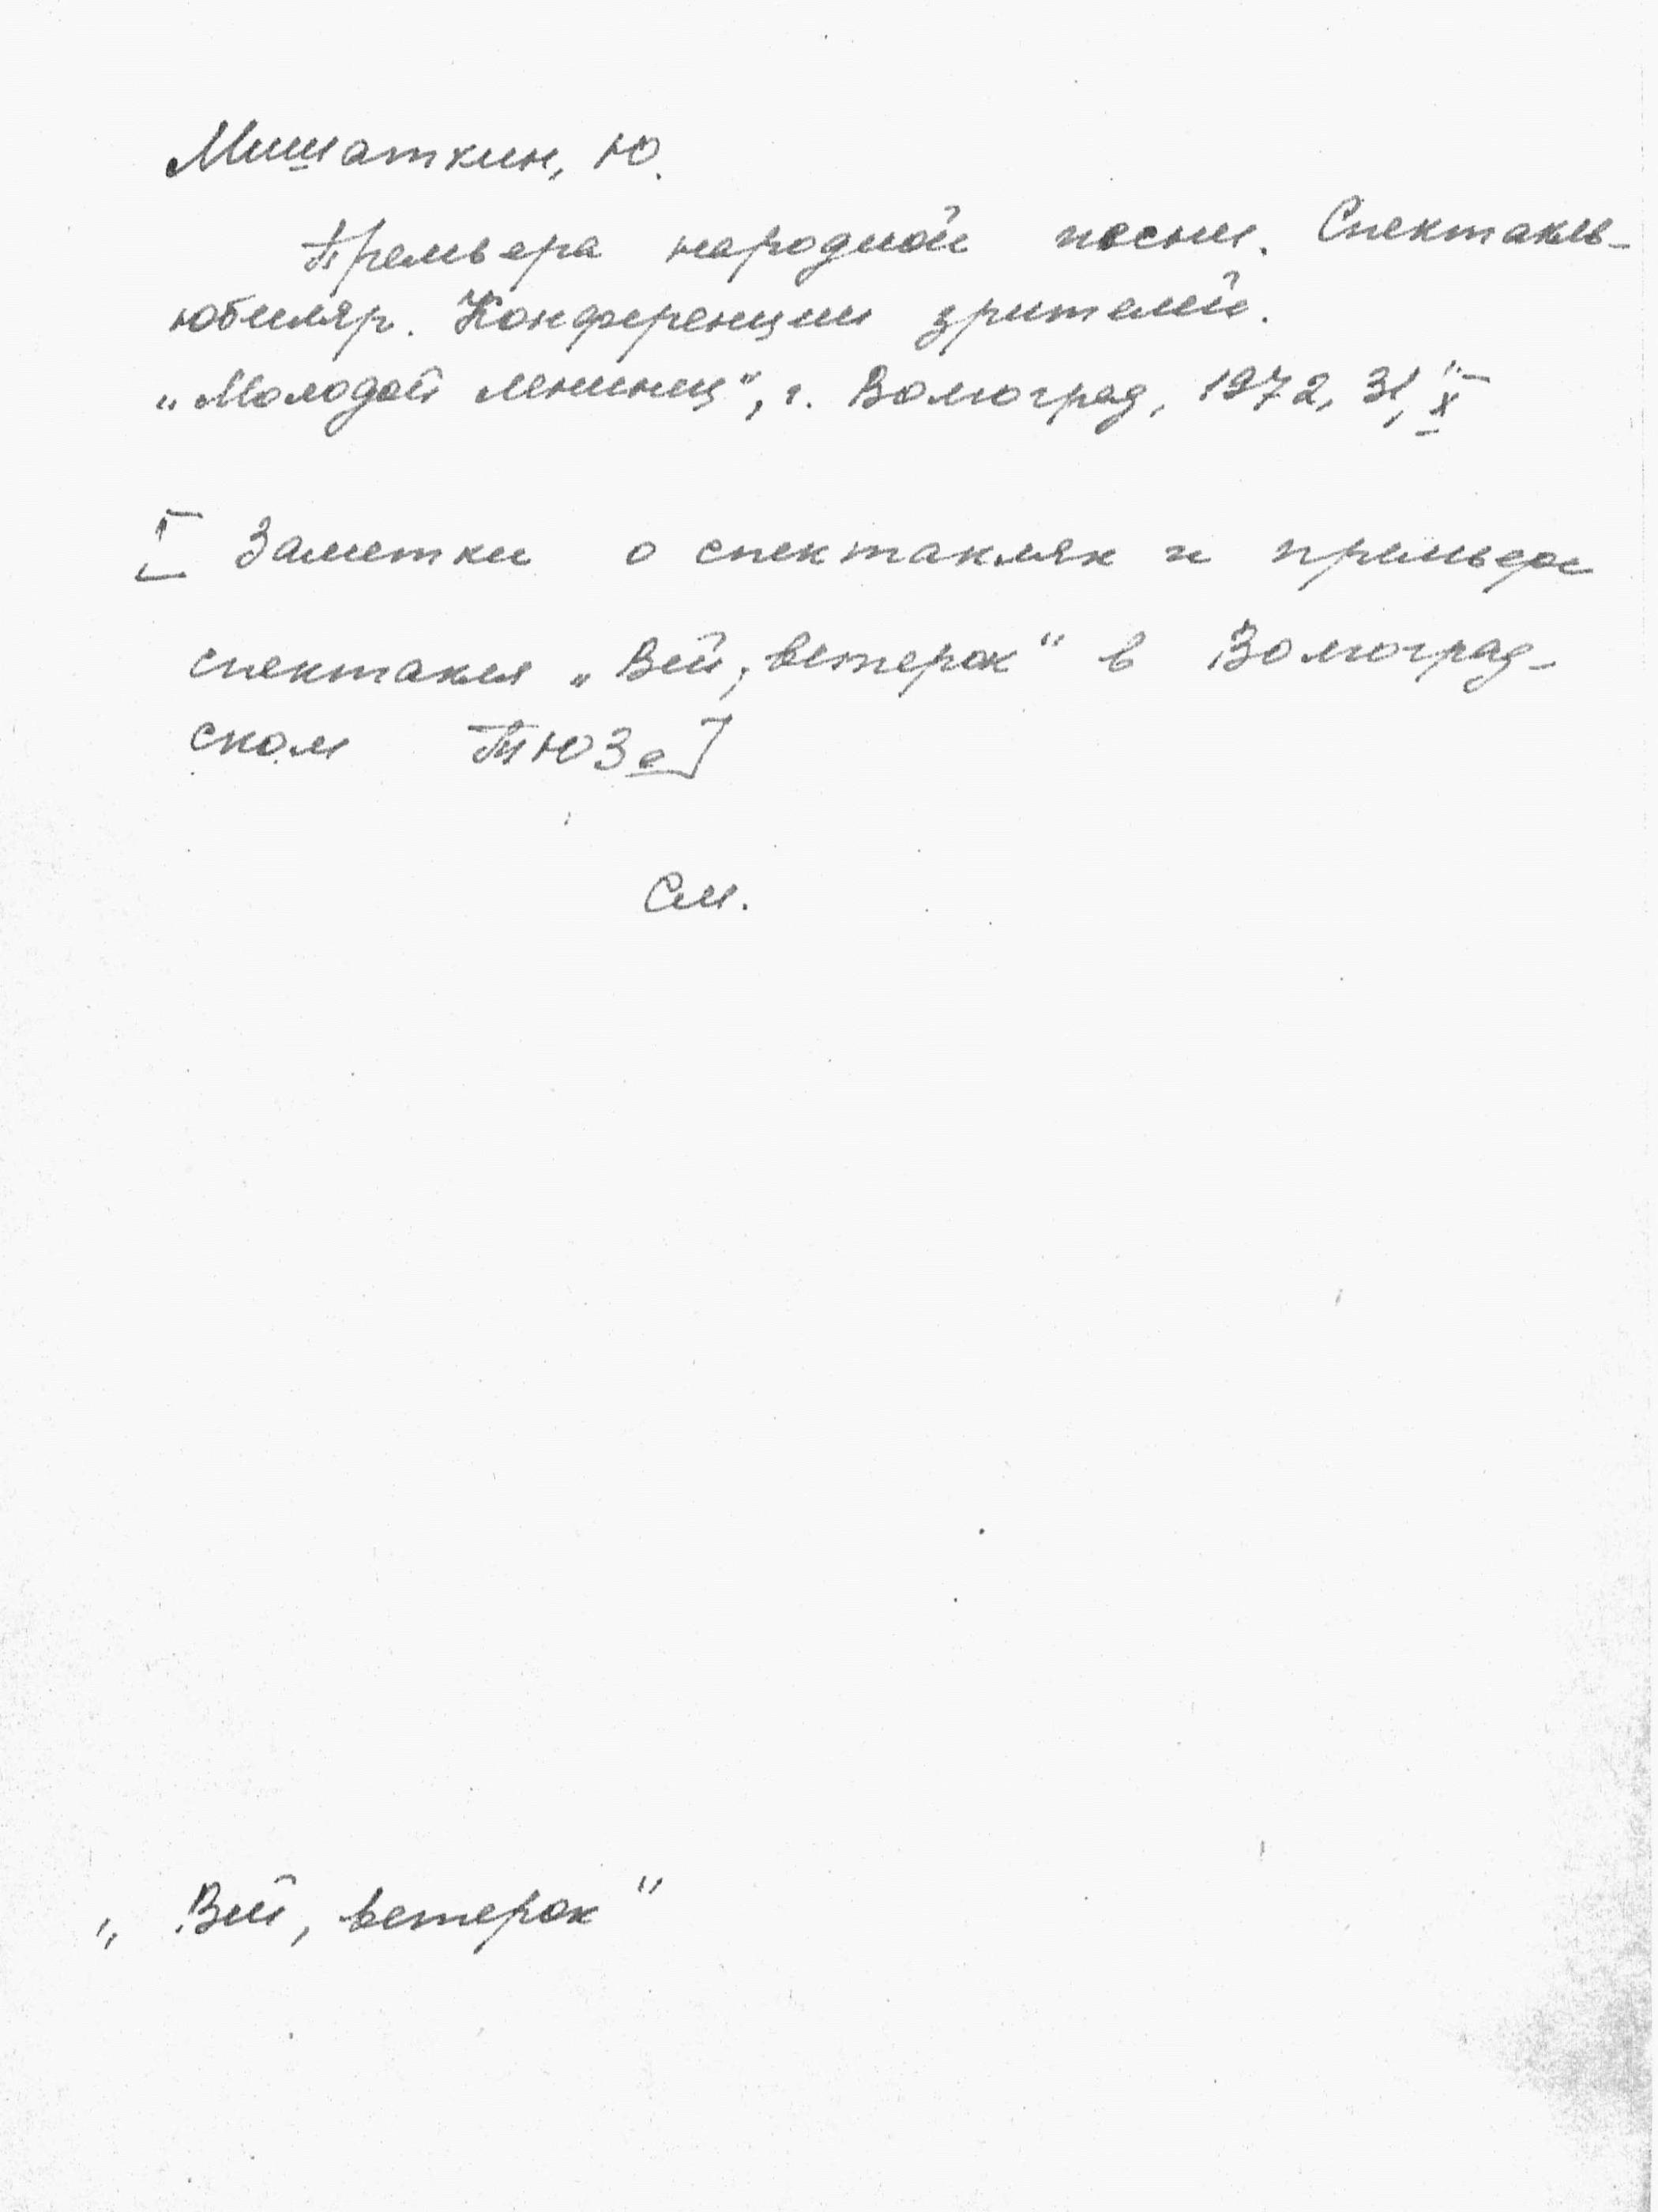 Мишаткин, Ю.
Премьера народной песни. Спектакль-
юбиляр. Конференции зрителей.
„Молодой ленинец“, г. Волгоград, 1972, 31, X
[Заметки о спектаклях и премьере
спектакля „Вей, ветерок“ в Волгоград-
ском ТЮЗе]
См.
„Вей, ветерок“